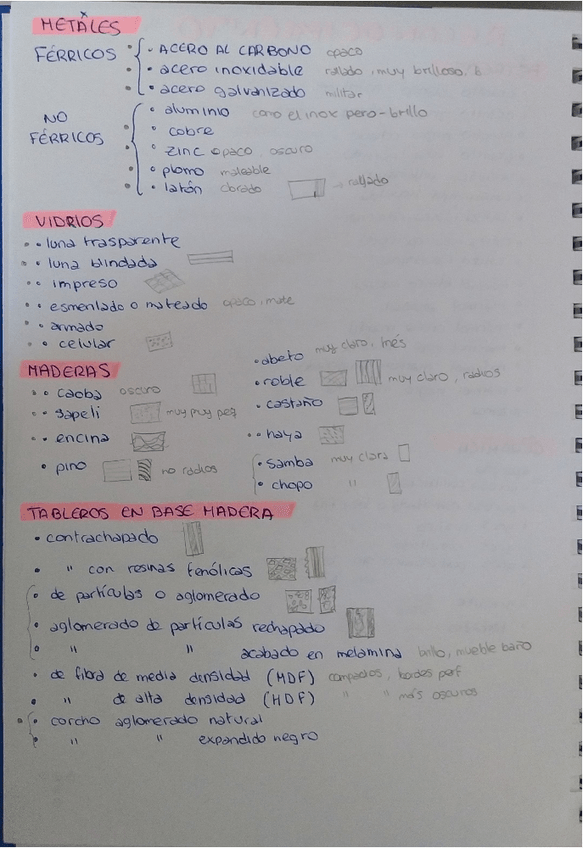 METÁLES
FÉRRICOS
• ACERO AL CARBONO opaco
• acero inoxidable rallado, muy brilloso,
• acero galvanizado militar
NO FÉRRICOS
• aluminio como el inox pero - brillo
• cobre
• zinc opaco, oscuro
• plomo maleable
• latón dorado → rallado
VIDRIOS
• luna trasparente
• luna blindada
• impreso
• esmenlado o mateado opaco, mate
• armado
• celular
MADERAS
• caoba oscuro
• sapeli muy puy peq
• encina
• pino no radios
• abeto muy claro, Inés
• roble muy claro, radios
• castaño
• haya
• samba muy clara
• chopo "
TABLEROS EN BASE MADERA
• contrachapado
• " con resinas fenólicas
• de partículas o aglomerado
• aglomerado de partículas rechapado
• " " acabado en melamina brillo, mueble baño
• de fibra de media densidad (MDF) compactos, bordes perf
• " de alta densidad (HDF) " " más oscuros
• corcho aglomerado natural
• " " expandido negro